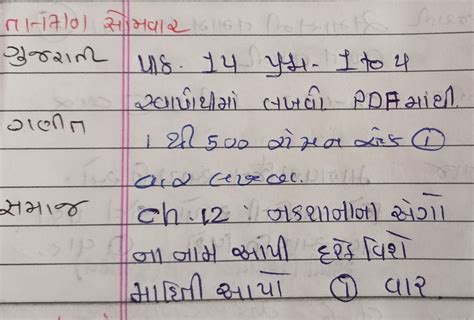 સોમવાર
ગુજરાતી પાઠ. 14 પ્રશ્ન - 1 to 4
સ્વાપોથીમાં લખવી - PDF માંથી
ગણીત 1 થી 500 ①
વાર લખવા.
સમાજ Ch. 12 : નકશાનાના અંગો
ના નામ આપી દરેક વિશે
માહિતી આપો ① વાર.